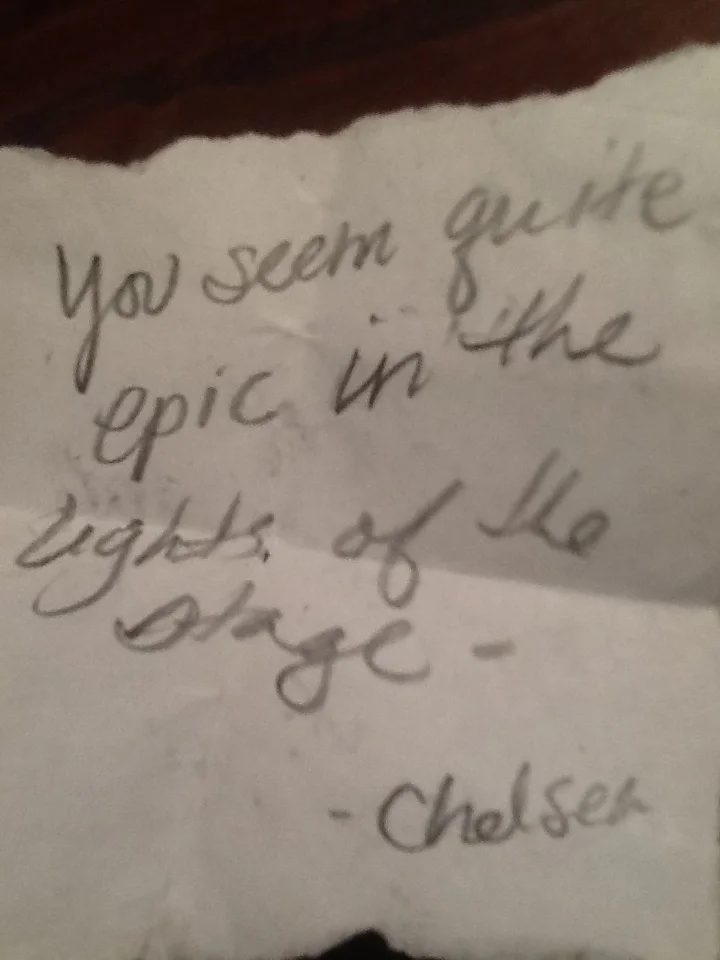 You seem quite
epic in the
lights of the
stage -
- Chelsea